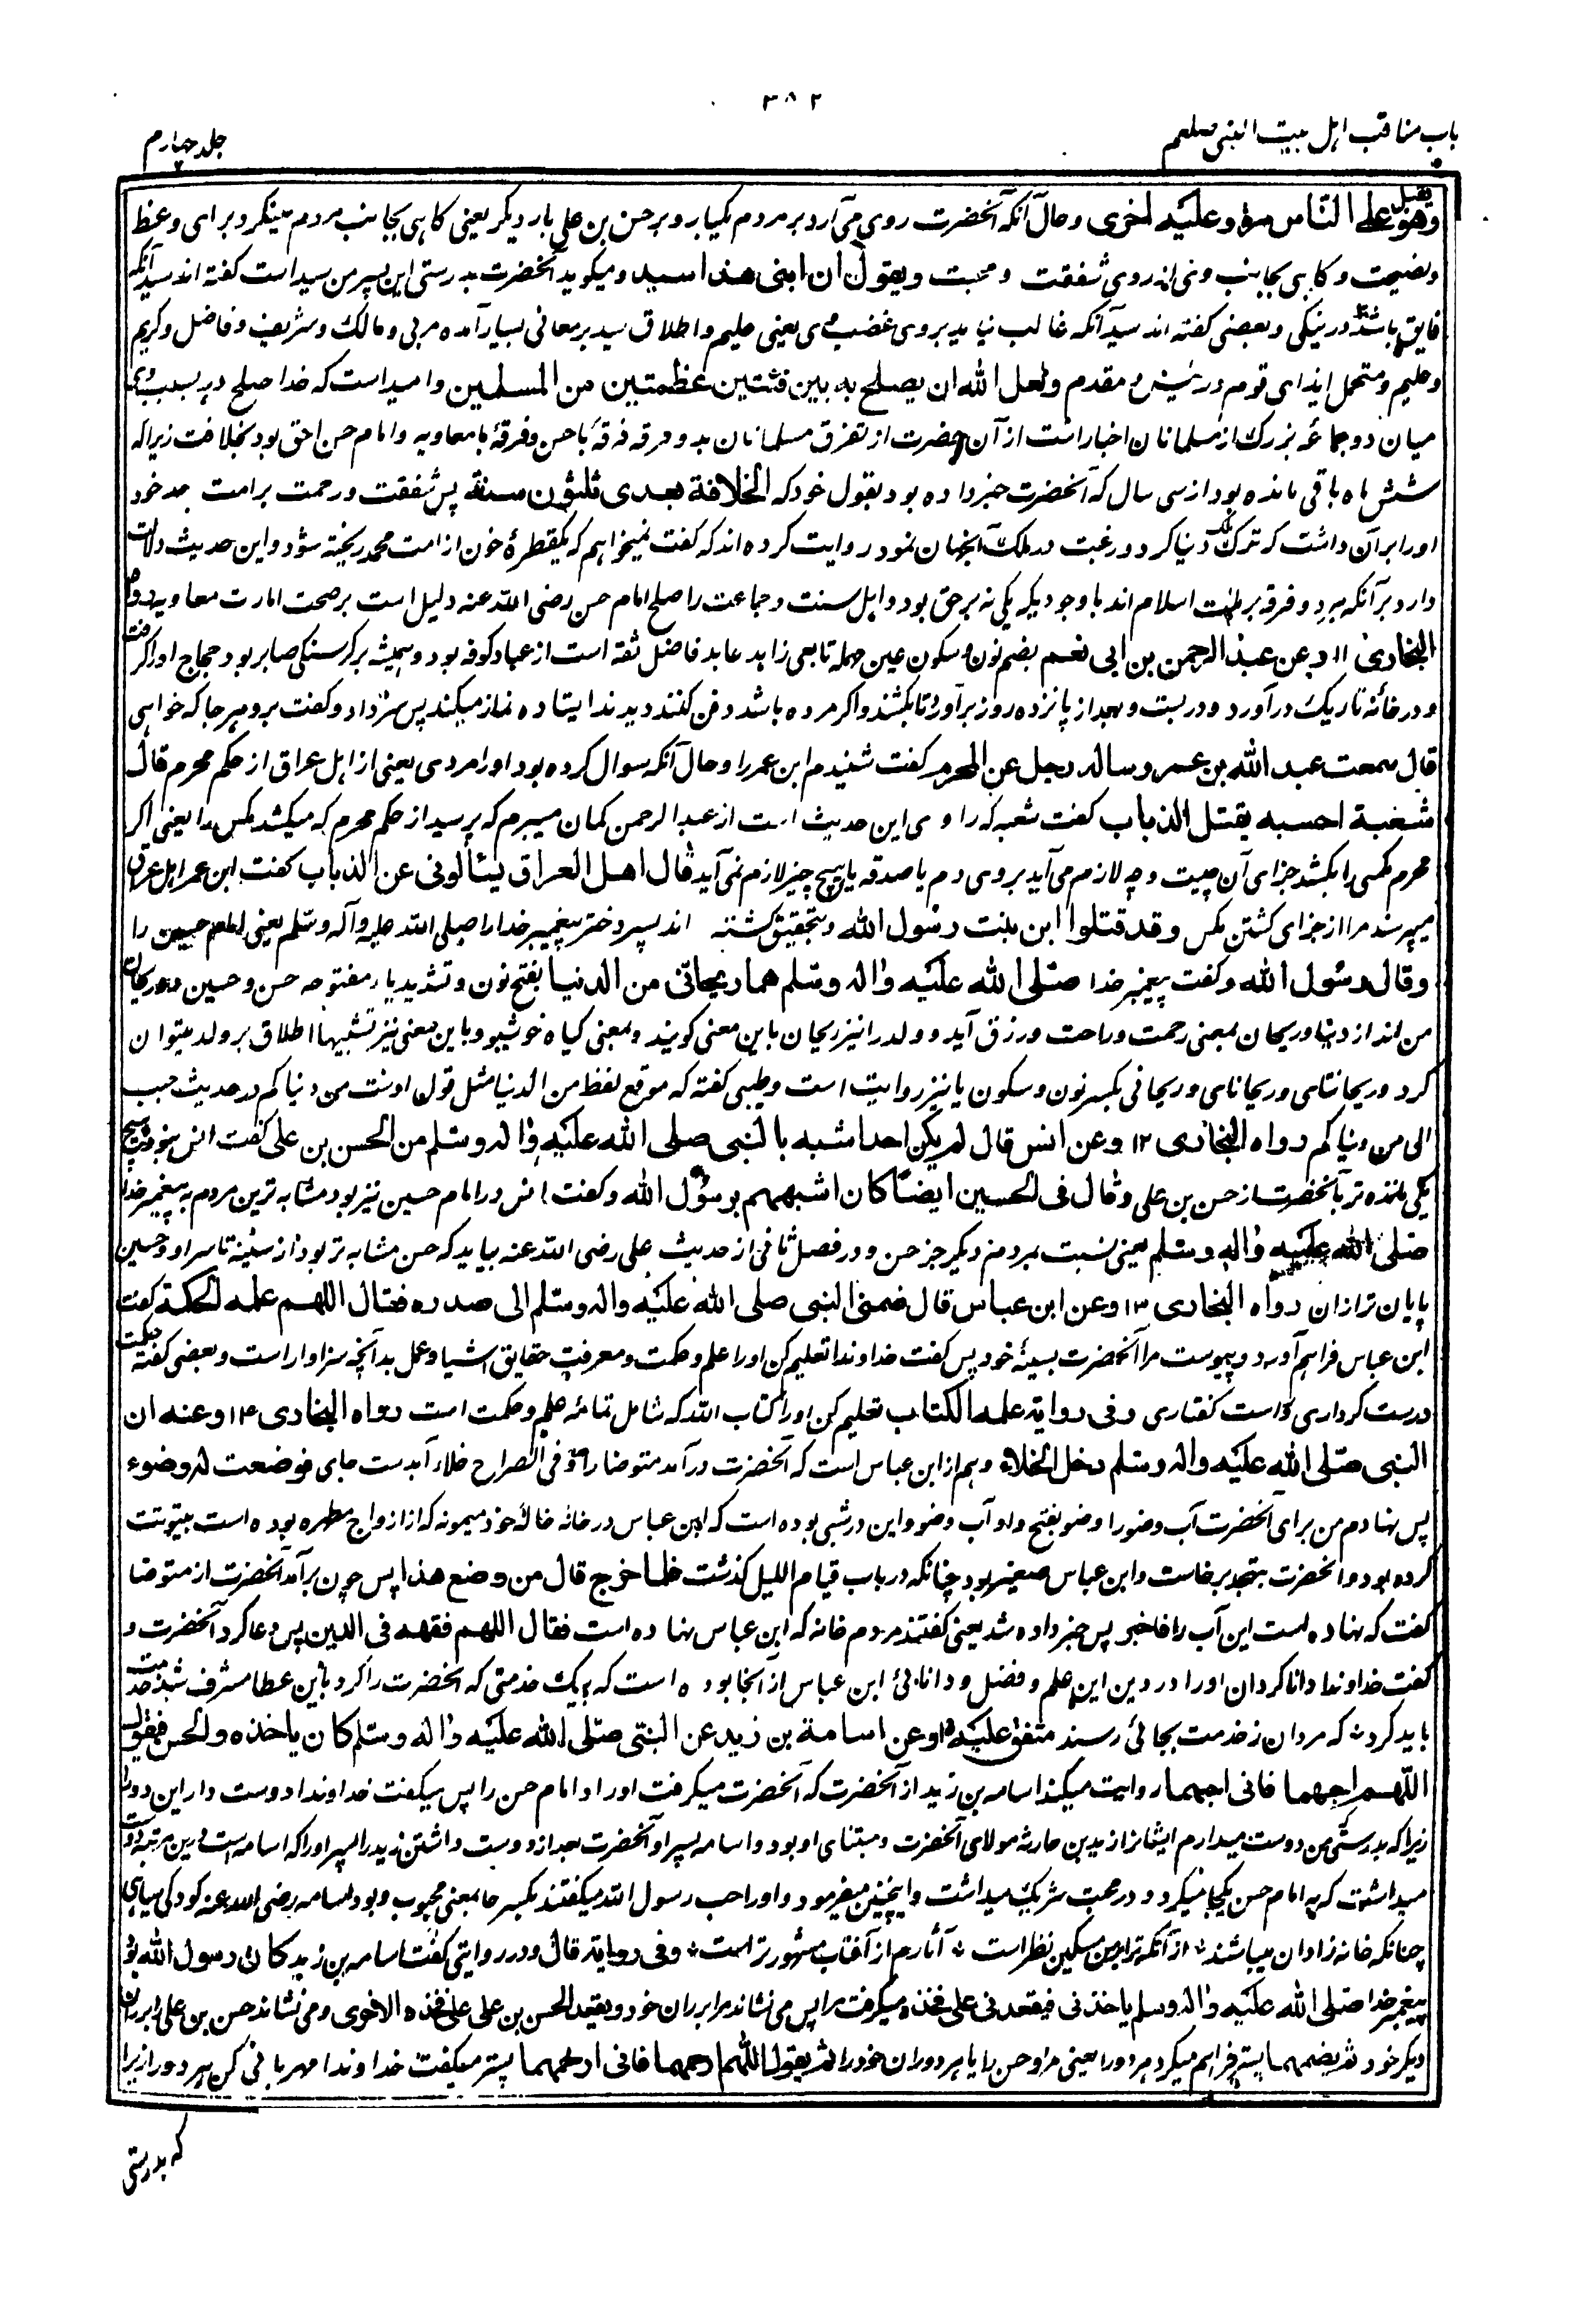 ۳۸۲
باب مناقب اہل بیت النبی صلعم
جلد چہارم
وهو يقبل على الناس مرة وعليه اخرى وحال آنکہ آنحضرت روی می‌آرد بر مردم یکبار و بر حسن بن علی بار دیگر یعنی گاہی بجانب مردم مینگرد برای وعظ
ونصیحت و گاہی بجانب وی از روی شفقت و محبت ويقول ان ابنى هذا سيد ومیگوید آنحضرت بدرستی این پسر من سید است گفته اند سید آنکه
فایق باشد در نیکی و بعضی گفته اند سید آنکه غالب نیاید بروی غضب وی یعنی حلیم واطلاق سید بر معانی بسیار آمده مربی و مالک و شریف و فاضل و کریم
وحلیم ومتحمل ایذای قوم ورئیس و مقدم ولعل الله ان يصلح به بين فئتين عظمتين من المسلمين وامید است که خدا صلح دهد بسبب وی
میان دو جماعه بزرگ از مسلمانان اخبار است از آن حضرت از تفرق مسلمانان بدو فرقه فرقۀ با حسن و فرقۀ با معاویه وامام حسن احق بود بخلافت زیرا که
شش ماه باقی مانده بود از سی سال که آنحضرت خبر داده بود بقول خود که الخلافة بعدى ثلثون سنة پس شفقت ورحمت بر امت جد خود
اورا بر آن داشت که ترک ملک دنیا کرد ورغبت در ملک آنجهان نمود روایت کرده اند که گفت نمیخواهم که یکقطرۀ خون از امت محمد ریخته شود واین حدیث دلالت
دارد بر آنکه هر دو فرقه بر ملت اسلام اند با وجودیکه یکی نه بر حق بود واهل سنت وجماعت را صلح امام حسن رضی الله عنه دلیل است بر صحت امارت معاویه رواه
البخارى ۱۱ وعن عبد الرحمن بن ابى نعم بضم نون وسکون عین مهمله تابعی زاهد عابد فاضل ثقه است از عباد کوفه بود وهمیشه بر گرسنگی صابر بود حجاج اورا گرفت
و در خانۀ تاریک در آورد و در بست و بعد از پانزده روز بر آورد تا بکشند واگر مرده باشد دفن کنند دیدند ایستاده نماز میکند پس سر داد و گفت برو هر جا که خواهی
قال سمعت عبد الله بن عمر وساله رجل عن المحرم گفت شنیدم ابن عمر را وحال آنکه سوال کرده بود اورا مردی یعنی از اهل عراق از حکم محرم قال
شعبة احسبه يقتل الذباب گفت شعبه که راوی این حدیث است از عبد الرحمن گمان میبرم که پرسید از حکم محرم که میکشد مگس را یعنی اگر
محرم مگسی را بکشد جزای آن چیست وچه لازم می‌آید بروی دم یا صدقه یا هیچ چیز لازم نمی‌آید قال اهل العراق يسألونى عن الذباب گفت ابن عمر اهل عراق
میپرسند مرا از جزای کشتن مگس وقد قتلوا ابن بنت رسول الله وبتحقیق کشته اند پسر دختر پیغمبر خدا را صلی الله علیه وآله وسلم یعنی امام حسین را
وقال رسول الله وگفت پیغمبر خدا صلى الله عليه واله وسلم هما ريحانى من الدنيا بفتح نون وتشدید یاء مفتوحه حسن وحسین دو ریحان
من اند از دنیا وریحان بمعنی رحمت وراحت ورزق آید وولد را نیز ریحان باین معنی گویند وبمعنی گیاه خوشبو وباین معنی نیز تشبیها اطلاق بر ولد میتوان
کرد وریحانتای وریحانای وریحانی بکسر نون وسکون یا نیز روایت است وطیبی گفته که موقع لفظ من الدنیا مثل قول اوست من دنیاکم در حدیث حبب
الی من دنیاکم رواه البخارى ۱۲ وعن انس قال لم يكن احدا شبه بالنبى صلى الله عليه واله وسلم من الحسن بن على گفت انس نبود هیچ
یکی ماننده تر بآنحضرت از حسن بن علی وقال فى الحسين ايضا كان اشبههم برسول الله وگفت انس در امام حسین نیز بود مشابه ترین مردم به پیغمبر خدا
صلى الله عليه واله وسلم یعنی نسبت بمردم دیگر جز حسن ودر فصل ثانی از حدیث علی رضی الله عنه بیاید که حسن مشابه تر بود از سینه تا سر او وحسین
پایان تر ازان رواه البخارى ۱۳ وعن ابن عباس قال ضمنى النبى صلى الله عليه واله وسلم الى صدره فقال اللهم علمه الحكمة گفت
ابن عباس فراهم آورد وپیوست مرا آنحضرت بسینۀ خود پس گفت خداوندا تعلیم کن اورا علم وحکمت ومعرفت حقایق اشیا وعمل بدانچه سزاوار است وبعضی گفته حکمت
درست کرداری وراست گفتاری وفى رواية علمه الكتاب تعلیم کن اورا کتاب الله که شامل تمامۀ علم وحکمت است رواه البخارى ۱۴ وعنه ان
النبى صلى الله عليه واله وسلم دخل الخلاء وهم از ابن عباس است که آنحضرت در آمد متوضا را فی الصراح خلاء آبدست جای فوضعت له وضوء
پس نهادم من برای آنحضرت آب وضو را وضو بفتح واو آب وضو واین در شبی بوده است که ابن عباس در خانه خالۀ خود میمونه که از ازواج مطهره بوده است بیتوتت
کرده بود وآنحضرت بتهجد برخاست وابن عباس صغیر بود چنانکه در باب قیام اللیل گذشت فلما خرج قال من وضع هذا پس چون برآمد آنحضرت از متوضا
گفت که نهاده است این آب را فاخبر پس خبر داده شد یعنی گفتند مردم خانه که ابن عباس نهاده است فقال اللهم فقهه فى الدين پس دعا کرد آنحضرت و
گفت خداوندا دانا گردان اورا در دین این علم وفضل ودانائی ابن عباس از آنجا بوده است که بیک خدمتی که آنحضرت را کرد باین عطا مشرف شد خدمت
باید کرد که مردان ز خدمت بجائی رسند متفق عليه ۱۵ وعن اسامة بن زيد عن النبى صلى الله عليه واله وسلم كان ياخذه والحسن فيقول
اللهم احبهما فانى احبهما روایت میکند اسامه بن زید از آنحضرت که آنحضرت میگرفت اورا وامام حسن را پس میگفت خداوندا دوست دار این دو را
زیرا که بدرستی من دوست میدارم ایشانرا زید بن حارثه مولای آنحضرت ومتبنای او بود واسامه پسر او آنحضرت بعد از دوست داشتن زید را پسر اورا که اسامه است درین مرتبه دوست
میداشت که به امام حسن یکجا میکرد ودر محبت شریک میداشت واینچنین میفرمود واورا حب رسول الله میگفتند بکسر حا بمعنی محبوب وبود اسامه رضی الله عنه کودکی سیاهی
چنانکه خانه زادان میباشند از آنکه ترا بمن مسکین نظر است آثارم از آفتاب مشهورتر است وفى رواية قال ودر روایتی گفت اسامه بن زید كان رسول الله بود
پیغمبر خدا صلى الله عليه واله وسلم ياخذنى فيقعدنى على فخذه میگرفت مرا پس می‌نشاند مرا بر ران خود ويقعد الحسن بن على على فخذه الاخرى ومی نشاند حسن بن علی را بر ران
دیگر خود ثم يضمهما پستر فراهم میکرد هر دو را یعنی مرا وحسن را یا هر دو ران خود را ثم يقول اللهم ارحمهما فانى ارحمهما پستر میگفت خداوندا مهربانی کن هر دو را زیرا
که بدرستی